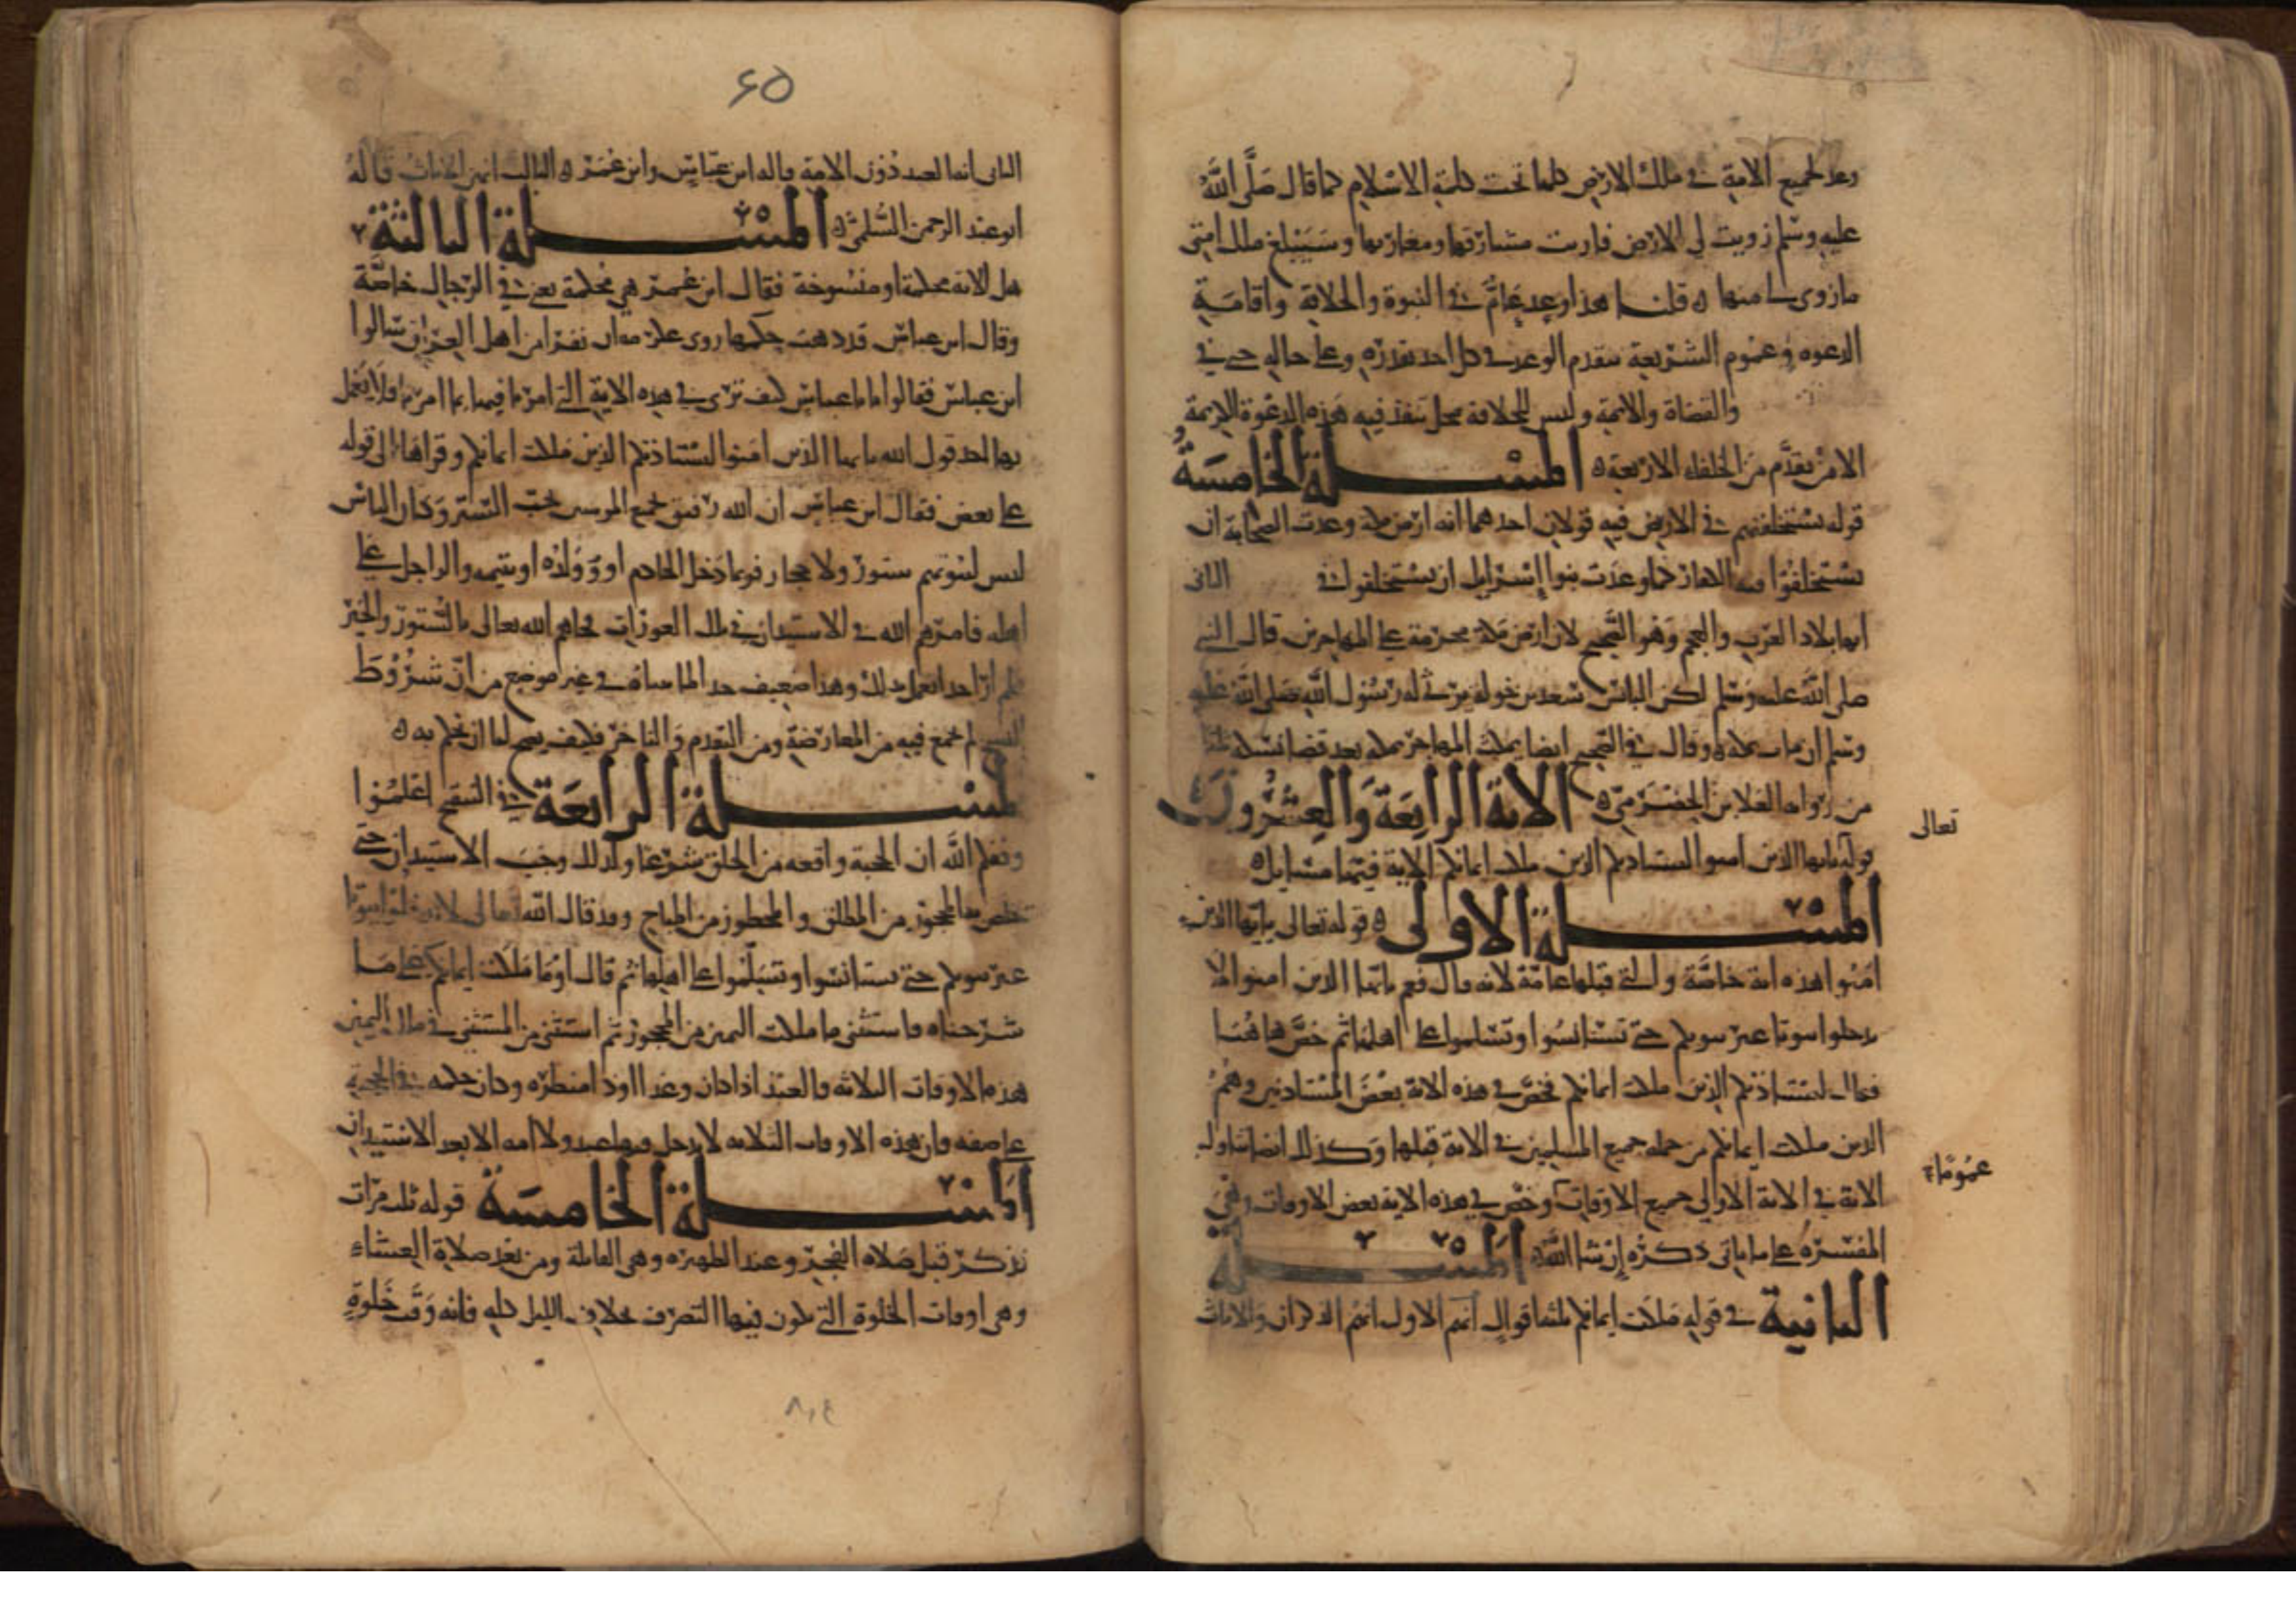 وعد لجميع الامة في ملك الارض كلها تحت كلمة الاسلام كما قال صَلَّى اللَّهُ
عليه وسلم زويت لي الارض فاريت مشارقها ومغاربها وسَيَبْلغ ملك امتي
ما زوي لي منها قلنا هذا وعد عَامٌّ في النبوة والخلافة واقامَة
الدعوه وعموم الشريعة بتقدم الوعد في كل احد بقدره وعلى حاله حتى في
والقضاة والايمة وليس للخلافة محل تنفذ فيه هَذِه الدعوة الا من
الامر تقدَّم مِن الخلفاء الاربعة المسْـلة الخامسَةُ
قوله يستخلفنهم في الارض فيه قولان احدهما انه ارض مكة وعدت الصحابة ان
يستخلفُوا الكفار كما وعدَت بنوا إسْرايل ان يستخلفوا في الثاني
انها بلاد العرَب والعجم وَهو الصَّحيح لان ارض مَكة محرمة على المهاجرين قال النبي
صلى اللَّهُ عليه وَسَلم لكن البائس سَعد بن خولة يَرثي له رَسُول اللَّهِ صَلى اللَّهُ عليه
وسَلم ان مات بمكة وقال في الصَّحيح ايضا يمكث المهاجر بمكة بعد قضا نسكه ثلاثا
من رواية العلا بن الحضْرَمِيّ الاية الرابعَة وَالعِشْرُونَ
تعالى
قوله يايها الذين امنوا ليستاذنكم الذين ملكت ايمانكم الاية فيهَا مسَايل
المسْـلة الاولى قوله تعالى يايُّها الذين
امَنُوا هَذه اية خاصَّة والتي قبلها عامَّة لانه قال فيها يايُّها الذين امنوا لا
تدخلوا بيوتا غيْر بيوتكم حتى تستانسُوا وتسَلموا على اهلهَا ثم خصَّ هاهُنَا
فقال ليستاذنكم الذين ملكت ايمانكم فخصَّ في هذه الاية بعْضَ المُسْتاذنين وهُمُ
الذين ملكت ايمانكم من جمله جميع المسلمين في الاية قبلها وَكذلك ايضا يتناول
عمُومًا
الاية في الاية الاولى جميع الاوقات وخصَّ في هذه الاية بعض الاوقات وهي
المفسَّرَهُ على ما ياتي ذكرُه إن شا اللَّه المسْـلة
الثانية في قوله مَلكَت ايمانكم ثلثة اقوال انهم الاول انهُم الذكران والاناث
٤٥
الثاني انها للعبد دُون الامة قاله ابن عبَّاسٍ وابن عُمَر الثالث انهن الاناث قَالهُ
ابو عبْد الرحمن السُّلَمي المسْـلة الثالثة
هل الاية محكمة او منسُوخة فقال ابن عُمر هي مُحكمة يعني في الرِّجال خاصَّة
وقال ابن عباس قد ذهبَ حكمها روى عكرمه ان نفرا من اهل العِراق سَالوا
ابن عباسٍ فقالوا يا با عباس كيف ترى في هذه الاية التي امرنا فيها بما امرنا فلا يَعْمل
بها احد قول الله يايها الذين امنوا ليستاذنكم الذين ملكت ايمانكم وقراهَا الى قوله
على بعض فقال ابن عباسٍ ان الله رفيق بجميع المومنين يحب السّتر وَكان الناس
ليس لبيوتهم ستور ولا حجال فربما دَخل الخادم او وَلدُه او يتيمه والراجل على
اهله فامرَهم الله في الاستيذان في تلك العورَات فجاهم الله تعالى بالسُّتور والخير
فلم ار احدا يعمل بذلك وهذا ضعيف جدا لما بيناه في غير موضع من ان شرُوْط
النسخ لم تجتمع فيه من المعارضَة ومن التقدم والتاخر فكيف يصح لنا ان نحكم به
المسْـلة الرابعَة في التنقيح اعْلمُوا
وفقكم اللَّه ان الحجبة واقعه من الخلق شرْعا ولذلك وجَبَ الاستيذان حتى
يخلص به المحجور من المطلق والمحظور من المباح وقد قال اللَّه تعالى لا تدخلوا بيوتا
غير بيوتكم حتى تستانسُوا وتسَلموا على اهلها ثم قال او مَا مَلكت ايمانكم على ما
شرَحناه فاستثنى ما ملكت اليمين من المحجور ثم استثنى من المستثنى في ملك اليمين
هذه الاوقات الثلاثه فالعبد اذا كان وغدا او ذا منظره وكان حكمه في الحجبة
على صفه فان هذه الاوقات الثلاثه لا يدخل فيها عبد ولا امه الا بعد الاستيذان
المسْـلة الخامسَة قوله ثلث مرّات
نذكر قبل صَلاه الفجر وعند الظهيره وهي القايلة ومن بَعْد صلاة العشاءِ
وهي اوقات الخلوة التي يكون فيها التصرف بخلاف الليل كله فانه وَقْت خَلوةٍ